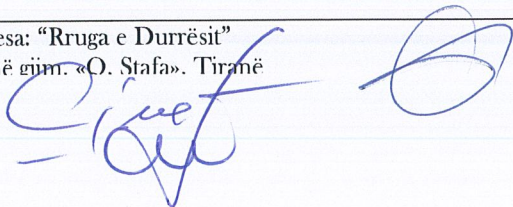 esa: “Rruga e Durrësit”
ë gjim. «Q. Stafa». Tiranë